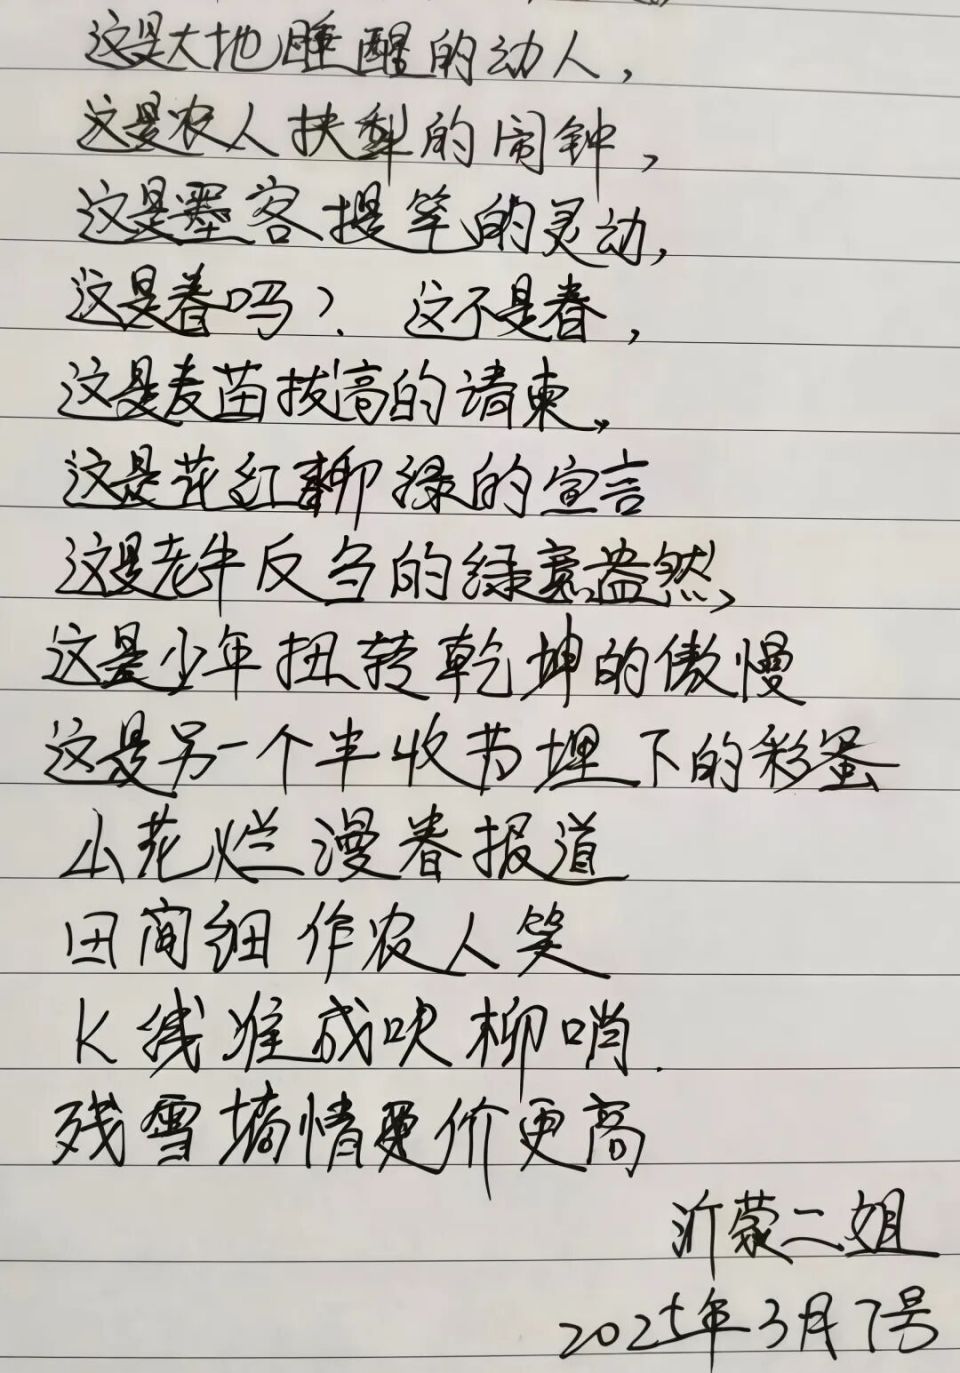 这是大地睡醒的动人，
这是农人扶犁的闹钟，
这是墨客提笔的灵动，
这是春吗？这不是春，
这是麦苗拔高的请柬。
这是花红柳绿的宣言
这是老牛反刍的绿意盎然，
这是少年扭转乾坤的傲慢
这是另一个丰收节埋下的彩蛋
山花烂漫春报道
田间细作农人笑
K线难成吹柳哨.
残雪墒情更价更高
沂蒙二姐
2025年3月7号